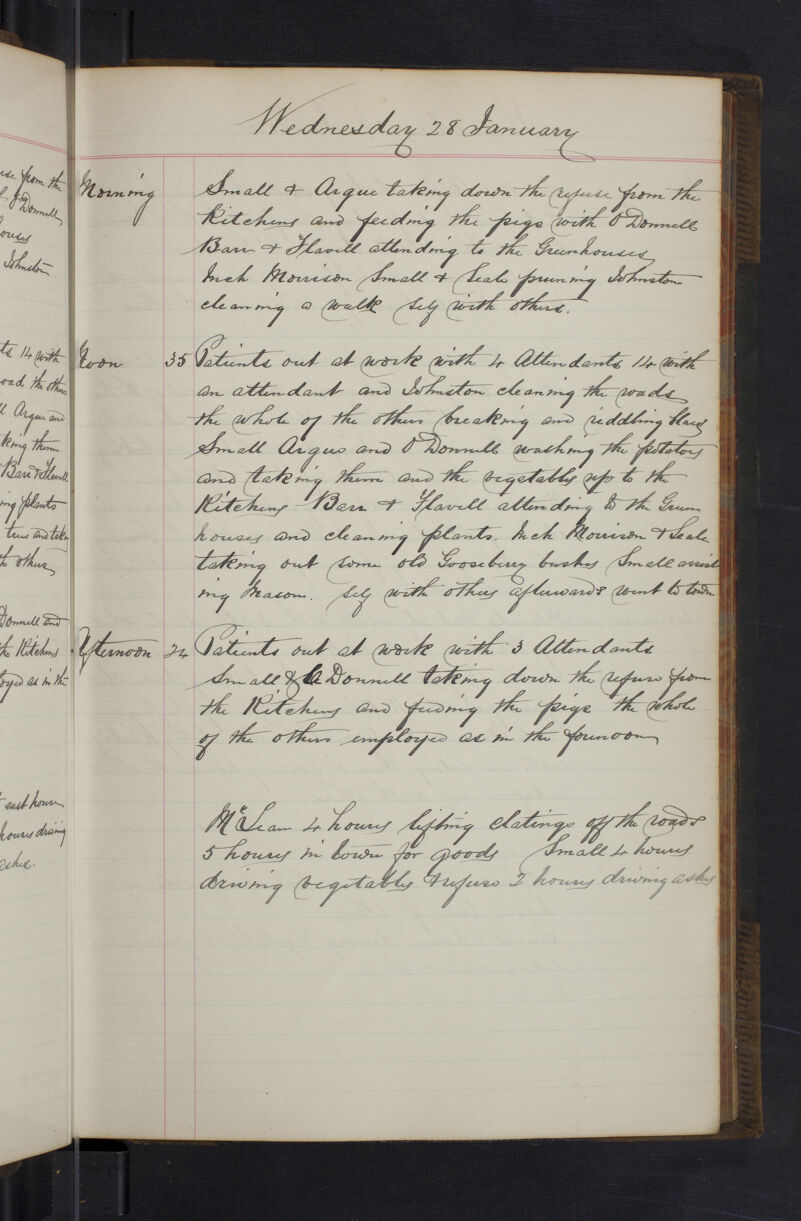 Wednesday 28 January
Morning Small & Argue taking down the refuse from the
Kitchens and feeding the pigs with O'Donnell
Barr & Flavill attending to the Greenhouses
Inch Morrison Small & Seale pruning Johnston
cleaning a walk Self with others.
Noon 35 Patients out at work with 4 Attendants 14 with
an attendant and Johnston cleaning the roads
the whole of the others breaking and riddling
Small Argue and O'Donnell washing the potatoes
and taking them and the vegetables up to the
Kitchens Barr & Flavill attending to the Green
houses and cleaning plants. Inch Morrison & Seale
taking out some old Gooseberry bushes Small assist
ing Mason. Self with others afterwards went to town
Afternoon 24 Patients out at work with 3 Attendants
Small & O'Donnell taking down the refuse from
the Kitchens and feeding the pigs the whole
of the others employed as in the forenoon
McLean 4 hours lifting off the roads
5 hours in town for goods Small 4 hours
driving vegetables & refuse 2 hours driving ashes
use from the
O'Donnell
ouses
Johnston
ts 14 with
oad the others
Argue and
king them
Barr & Flavill
ing plants
trees and
others
Donnell and
the Kitchens
oyed as in the
east house
hours driving
ashes.